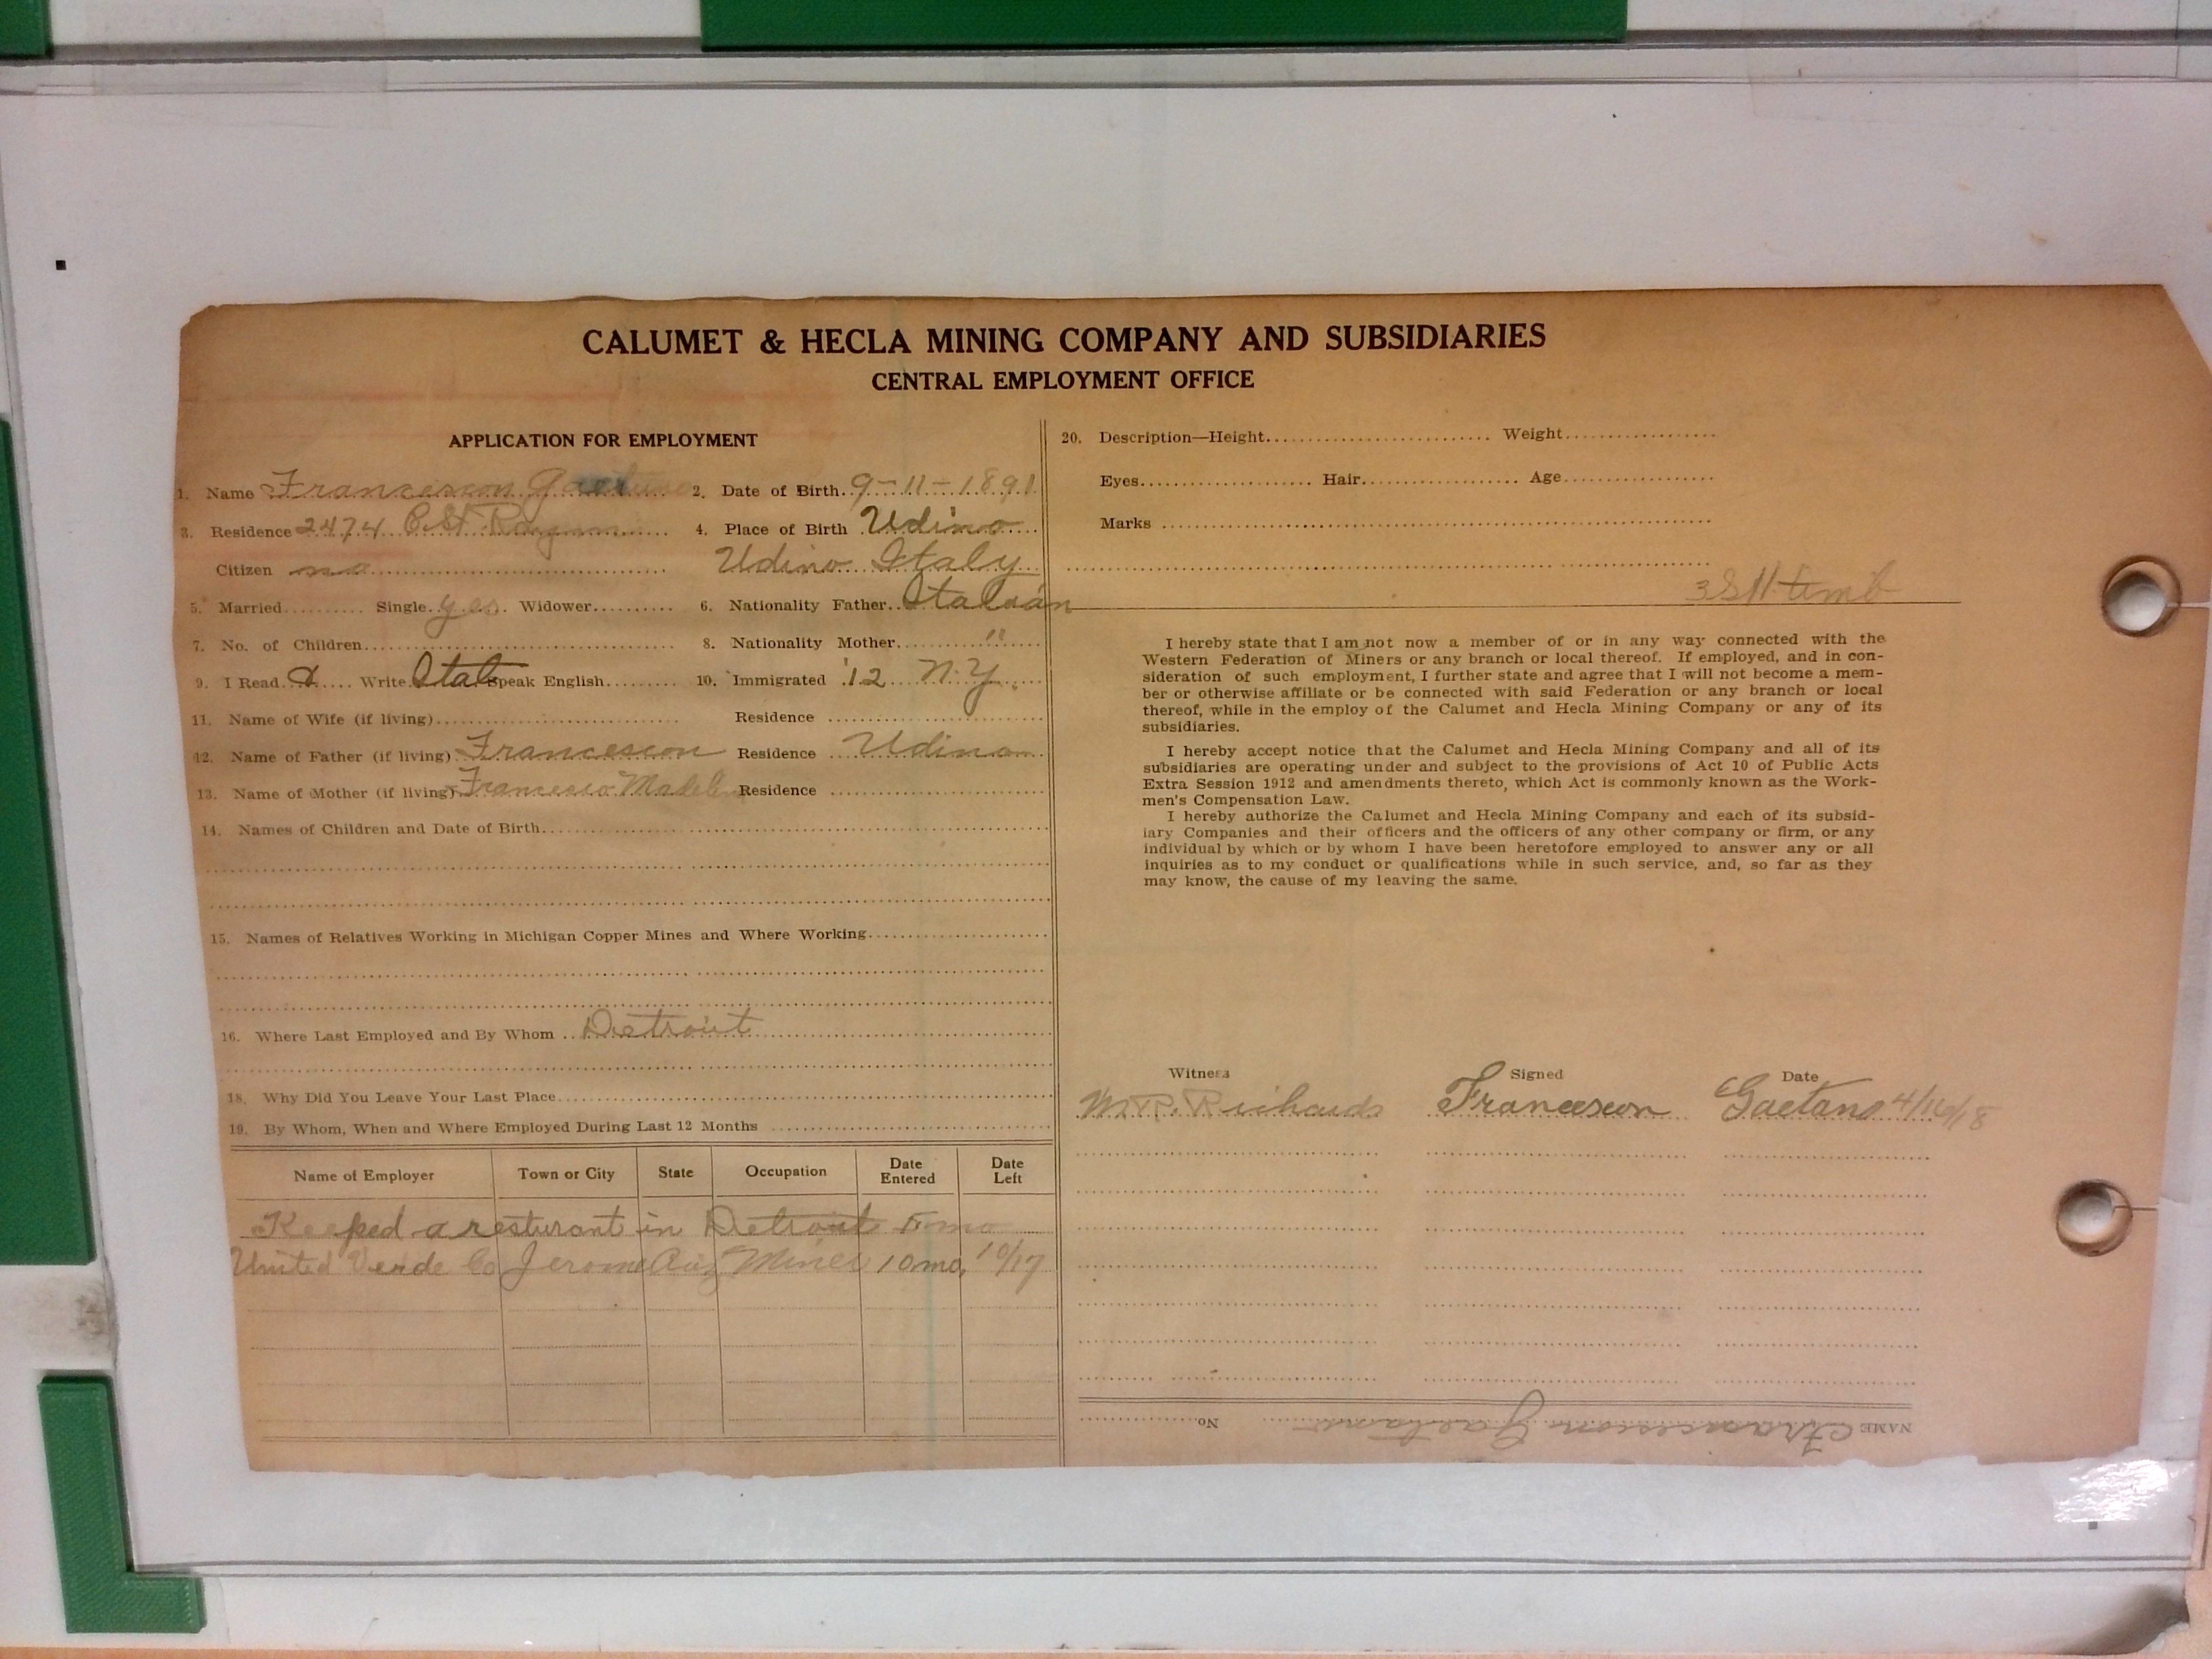 CALUMET & HECLA MINING COMPANY AND SUBSIDIARIES
CENTRAL EMPLOYMENT OFFICE
APPLICATION FOR EMPLOYMENT
1. Name Francescon Gaetano
2. Date of Birth 9-11-1891
3. Residence 2474 C. St.
4. Place of Birth Udino
Citizen no
Udino Italy
5. Married Single yes Widower
6. Nationality Father Italian
7. No. of Children
8. Nationality Mother "
9. I Read Write Ital Speak English
10. Immigrated '12 N.Y.
11. Name of Wife (if living) Residence
12. Name of Father (if living) Francescon Residence Udino
13. Name of Mother (if living) Francesco Residence
14. Names of Children and Date of Birth
15. Names of Relatives Working in Michigan Copper Mines and Where Working
16. Where Last Employed and By Whom Detroit
18. Why Did You Leave Your Last Place
19. By Whom, When and Where Employed During Last 12 Months
Name of Employer Town or City State Occupation Date Entered Date Left
Keeped a resturant in Detroit 5 mo
United Verde Co Jerome Ariz Miner 10 mo, 10/17
20. Description—Height Weight
Eyes Hair Age
Marks
I hereby state that I am not now a member of or in any way connected with the
Western Federation of Miners or any branch or local thereof. If employed, and in con-
sideration of such employment, I further state and agree that I will not become a mem-
ber or otherwise affiliate or be connected with said Federation or any branch or local
thereof, while in the employ of the Calumet and Hecla Mining Company or any of its
subsidiaries.
I hereby accept notice that the Calumet and Hecla Mining Company and all of its
subsidiaries are operating under and subject to the provisions of Act 10 of Public Acts
Extra Session 1912 and amendments thereto, which Act is commonly known as the Work-
men's Compensation Law.
I hereby authorize the Calumet and Hecla Mining Company and each of its subsid-
iary Companies and their officers and the officers of any other company or firm, or any
individual by which or by whom I have been heretofore employed to answer any or all
inquiries as to my conduct or qualifications while in such service, and, so far as they
may know, the cause of my leaving the same.
Witness Signed Date
M.R. Richards Francescon Gaetano 4/16/18
NAME Francescon Gaetano No.